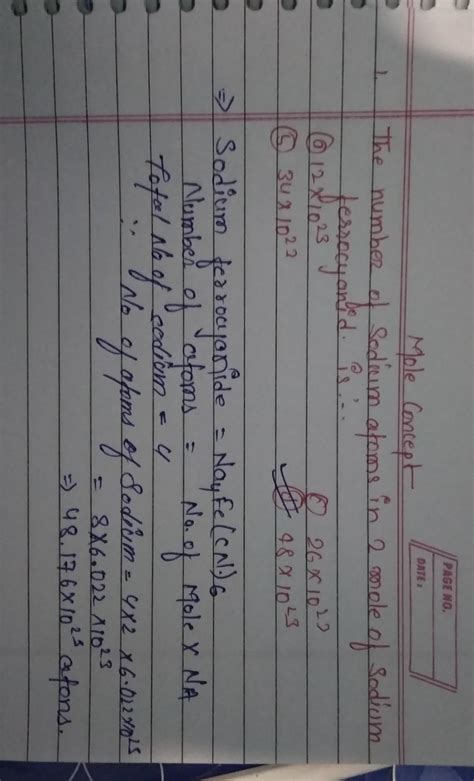 PAGE NO.
DATE:
Mole Concept
1. The number of Sodium atoms in 2 mole of Sodium
ferrocyanid. is :-
12 x 10^23 26 x 10^23
34 x 10^23 48 x 10^23
⇒ Sodium ferrocyanide = Na4Fe(CN)6
Number of atoms = No. of Mole x NA
Total No of sodium = 4
∴ No of atoms of Sodium = 4x2 x 6.022x10^23
= 8x6.022 x10^23
⇒ 48.176x10^23 atoms.